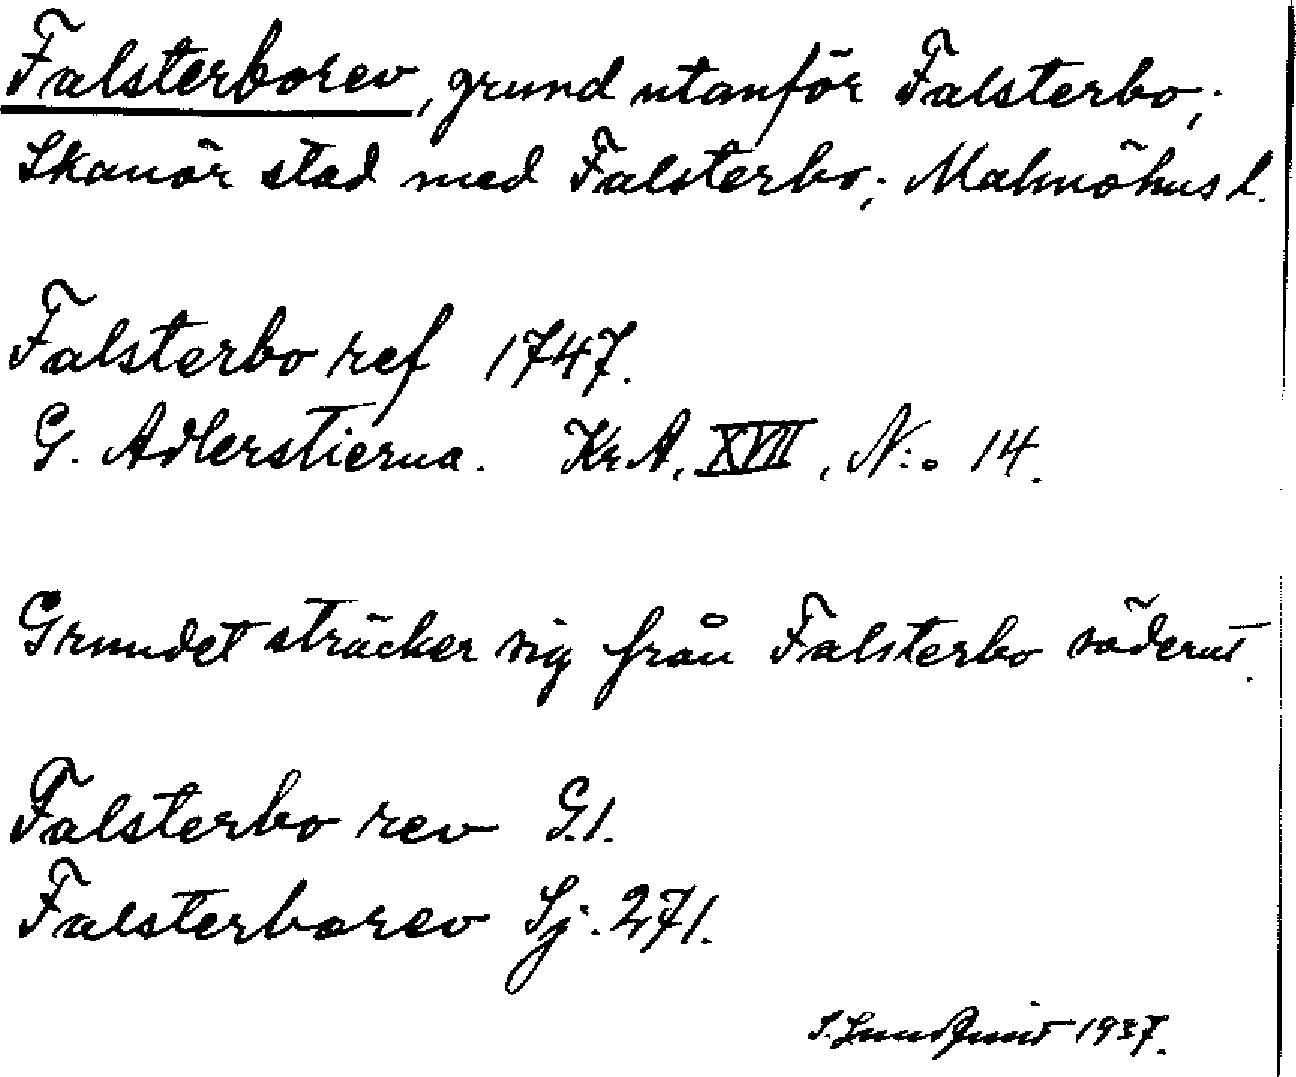 Falsterborev, grund utanför Falsterbo;
Skanör stad med Falsterbo; Malmöhus l.
Falsterbo ref 1747.
G. Adlerstierna. Kr A, XVII, N:o 14.
Grundet sträcker sig från Falsterbo söderut.
Falsterbo rev G.1.
Falsterborev Sj. 271.
S. Lundquist 1937.